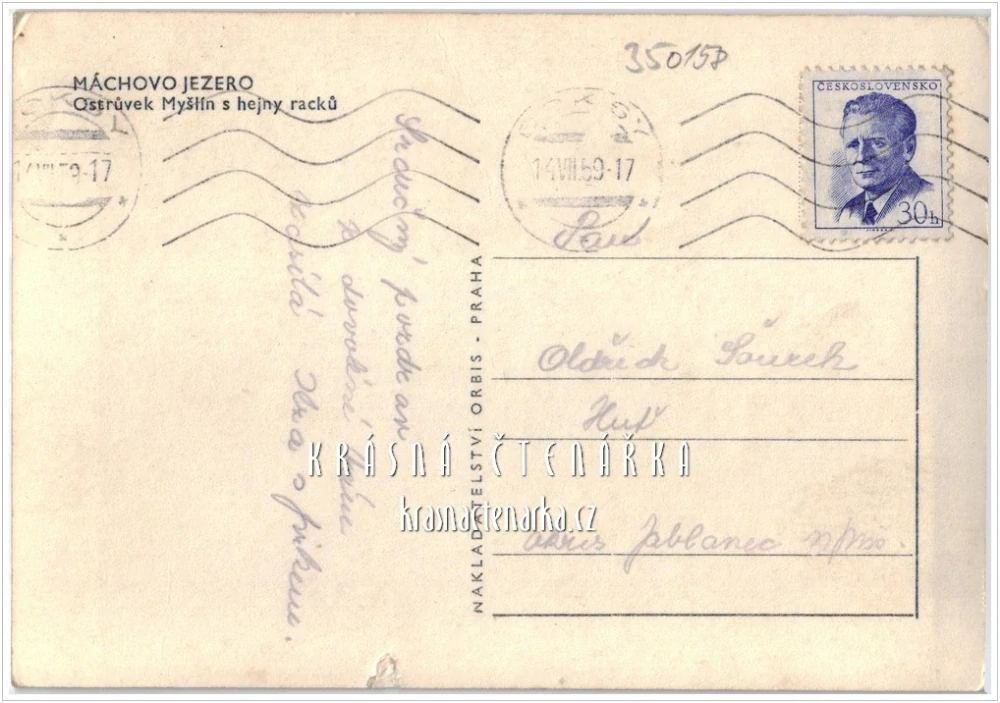 MÁCHOVO JEZERO
Ostrůvek Myšlín s hejny racků
350158
ČESKOSLOVENSKO
30h
14.VII.59-17
14.VII.59-17
Srdečný pozdrav
z dovolené Vám
zasílá
NAKLADATELSTVÍ ORBIS - PRAHA
Oldřich Šourek
Huť
okres Jablonec n/Nis.
KRÁSNÁ ČTENÁŘKA
krasnactenarka.cz